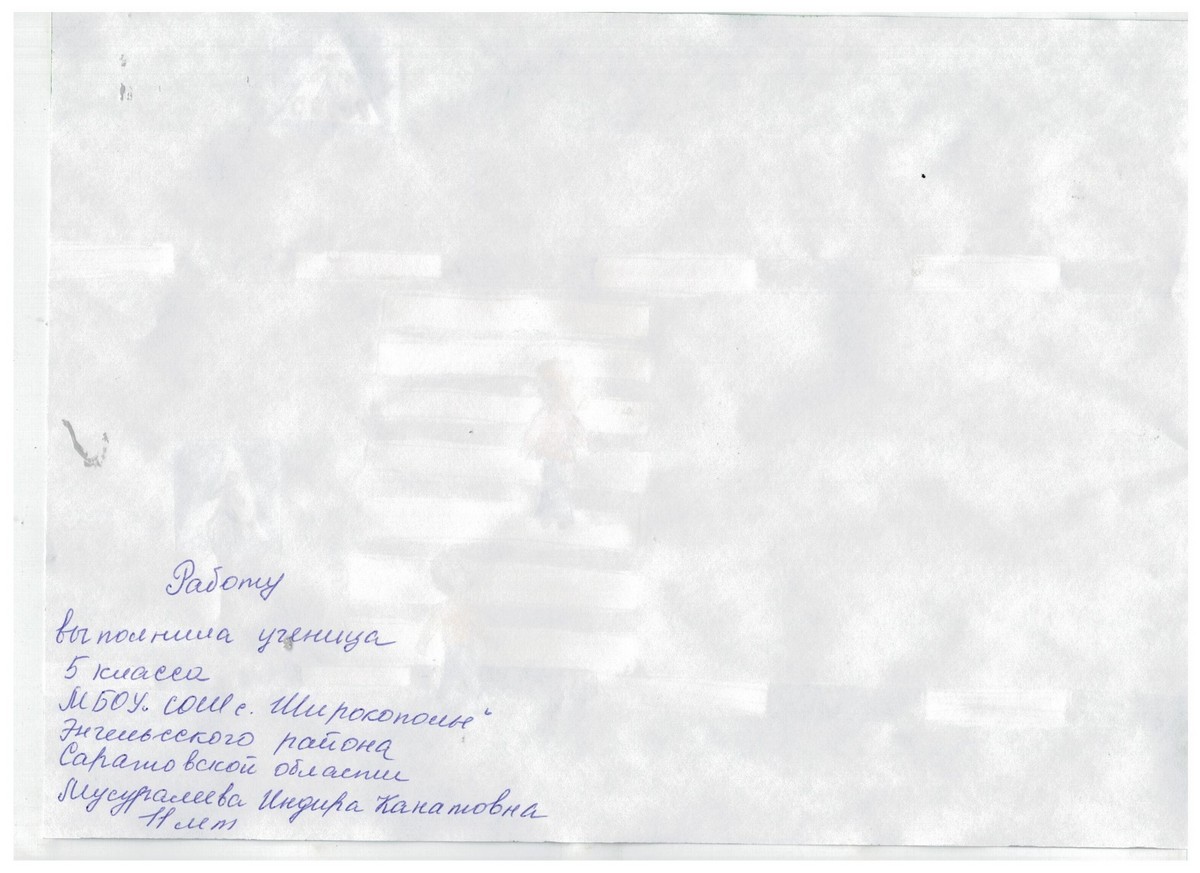 Работу
выполнила ученица
5 класса
МБОУ „СОШ с. Широкополье“
Энгельсского района
Саратовской области
Мусуралиева Индира Канатовна
11 лет